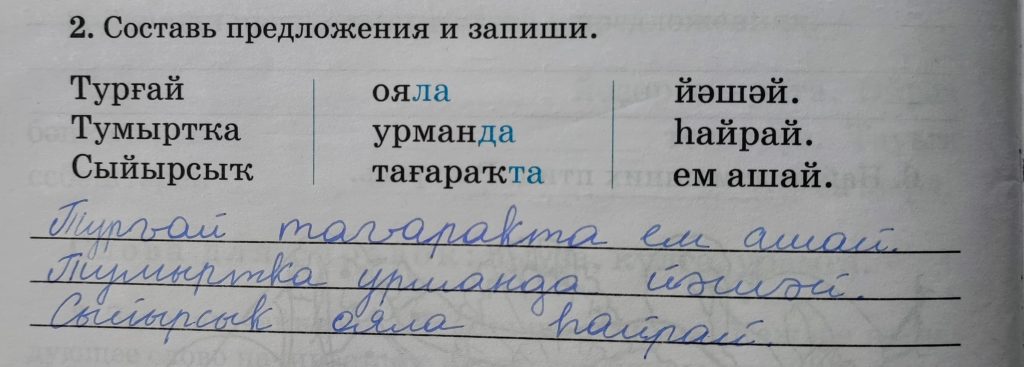 2. Составь предложения и запиши.
Турғай ояла йәшәй.
Тумыртҡа урманда һайрай.
Сыйырсыҡ тағараҡта ем ашай.
Турғай тағаракта ем ашай.
Тумыртка урманда йәшәй.
Сыйырсык ояла һайрай.